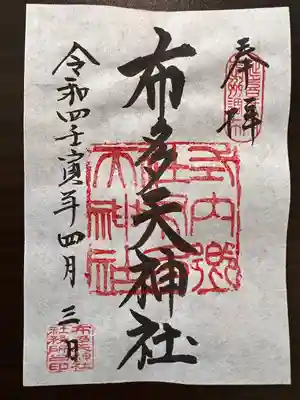 奉拝
布多天神社
令和四壬寅年四月三日
式内郷社布多天神社
布多天神社社務所之印